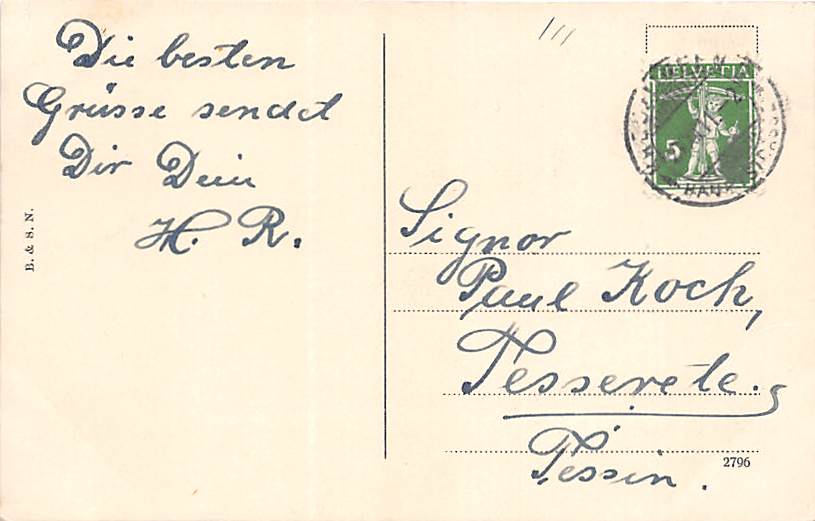 Die besten
Grüsse sendet
Dir Dein
H. R.
B. & S. N.
HELVETIA
5
Signor
Paul Koch,
Tesserete.
Tessin.
2796